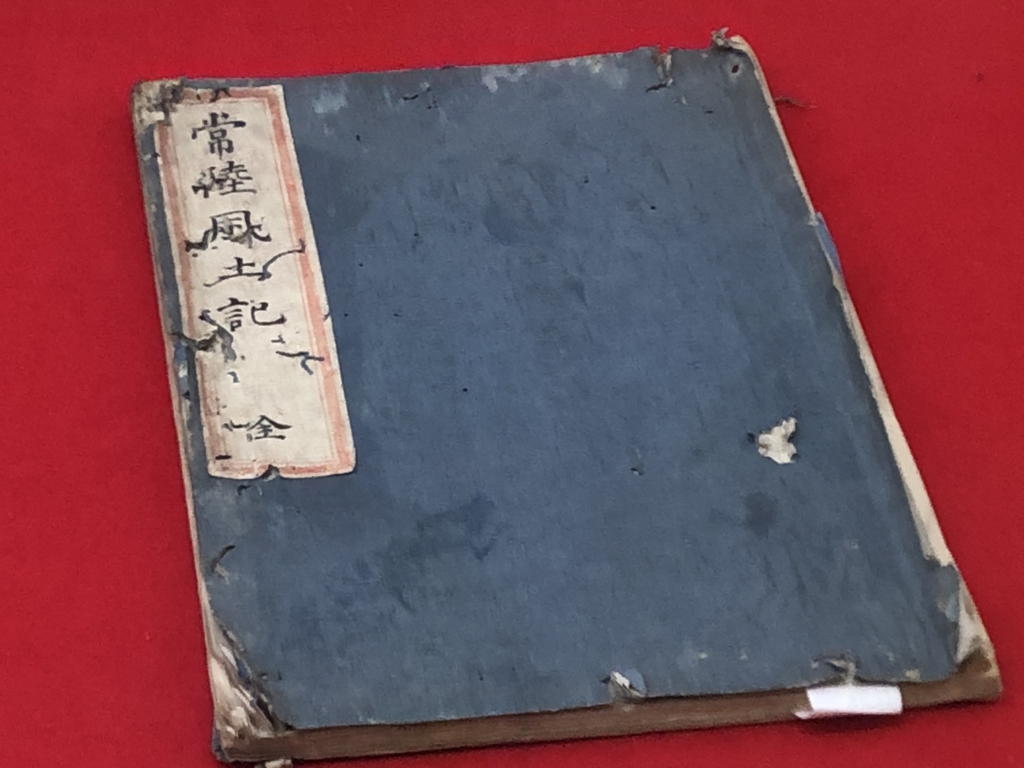 常陸風土記
全